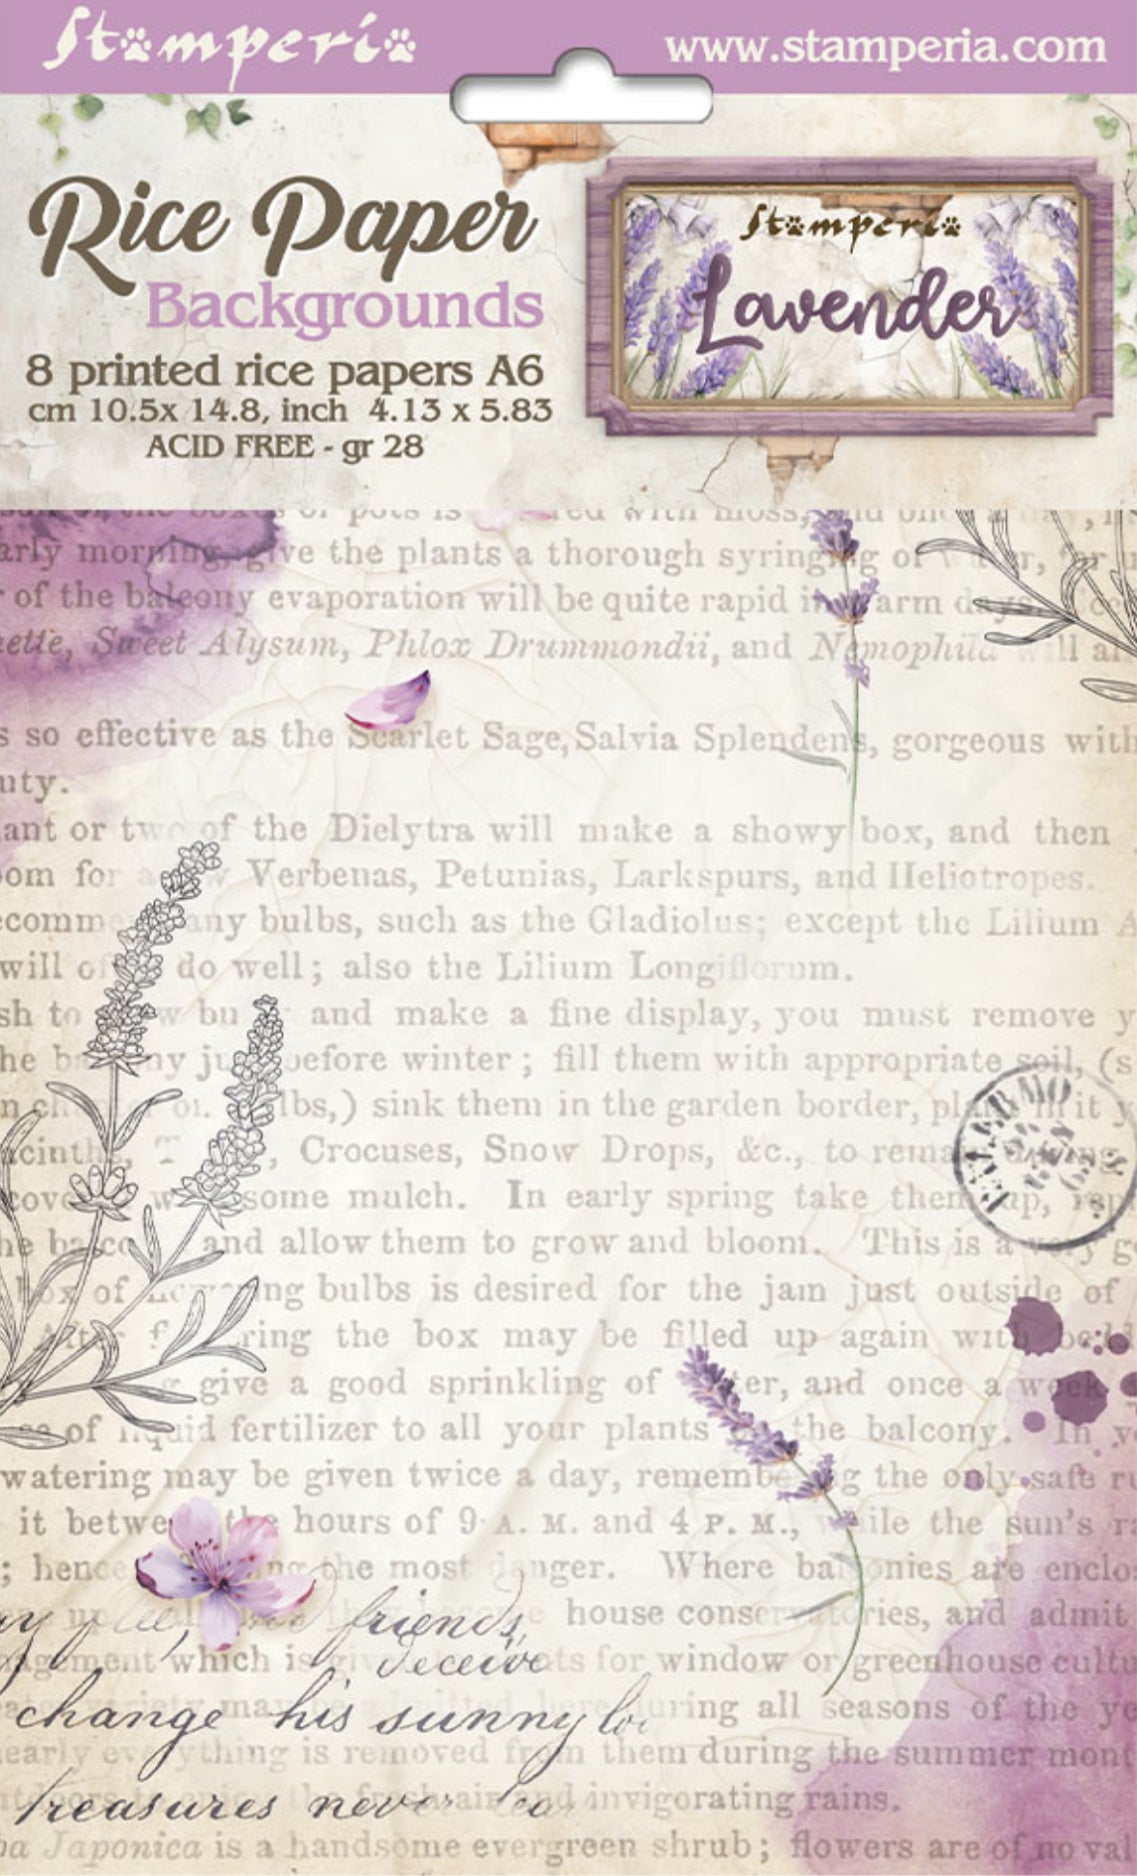 Stamperia
www.stamperia.com
Rice Paper
Backgrounds
8 printed rice papers A6
cm 10.5x 14.8, inch 4.13 x 5.83
ACID FREE - gr 28
Stamperia
Lavender
arly morning, give the plants a thorough syringing of
of the balcony evaporation will be quite rapid in warm days
Sweet Alysum, Phlox Drummondii, and Nemophila will
s so effective as the Scarlet Sage, Salvia Splendens, gorgeous with
uty.
ant or two of the Dielytra will make a showy box, and then
oom for a few Verbenas, Petunias, Larkspurs, and Heliotropes.
ecomm any bulbs, such as the Gladiolus; except the Lilium A
will of do well; also the Lilium Longiflorum.
sh to bu and make a fine display, you must remove y
he ba ny ju before winter; fill them with appropriate soil, (s
lbs,) sink them in the garden border, it y
acinths, T , Crocuses, Snow Drops, &c., to rema
cove w some mulch. In early spring take them up,
he and allow them to grow and bloom. This is a very g
box of ng bulbs is desired for the jam just outside of
ring the box may be filled up again with
give a good sprinkling of er, and once a week
of liquid fertilizer to all your plants the balcony. In
watering may be given twice a day, remembe g the only safe ru
it betwe the hours of 9 A. M. and 4 P. M., while the sun's ra
; hence ng the most danger. Where balconies are enclo
house conservatories, and admit
my friends,
agement which is ts for window or greenhouse cultu
deceive
variety may be admitted here during all seasons of the ye
change his sunny lo
nearly everything is removed from them during the summer mont
treasures never
and invigorating rains.
Japonica is a handsome evergreen shrub; flowers are of no val
PALERMO